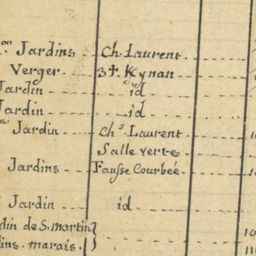 Jardins Ch. Laurent
Verger St. Kynan
Jardin id
Jardin id
Jardin Chs Laurent
Salle verte
Jardins Fausse Courbée
Jardin id
din de S. martin
ins. marais.